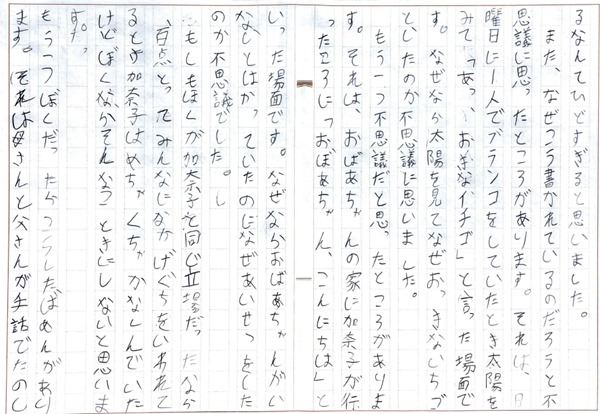 るなんてひどすぎると思いました。
また、なぜこう書かれているのだろうと不
思議に思ったところがあります。それは、日
曜日に1人でブランコをしていたとき太陽を
みて「あっ、おきなイチゴ」と言った場面で
す。なぜなら太陽を見てなぜおっきないちご
といたのか不思議に思いました。
もう一つ不思議だと思ったところがありま
す。それは、おばあちゃんの家に加奈子が行
ったころに「おばあちゃん、こんにちは」と
いった場面です。なぜならおばあちゃんがい
ないとはかっていたのになぜあいせつをした
のか不思議でした。
もしもぼくが加奈子と同じ立場だったなら
百点とってみんなになかげぐちをいわれて
ると加奈子はめちゃくちゃかなしんでいた
けどぼくならそんなこときにしないと思いま
す。
もう一つぼくだったらこうしたばめんがあり
ます。それは母さんと父さんが手話でたのし